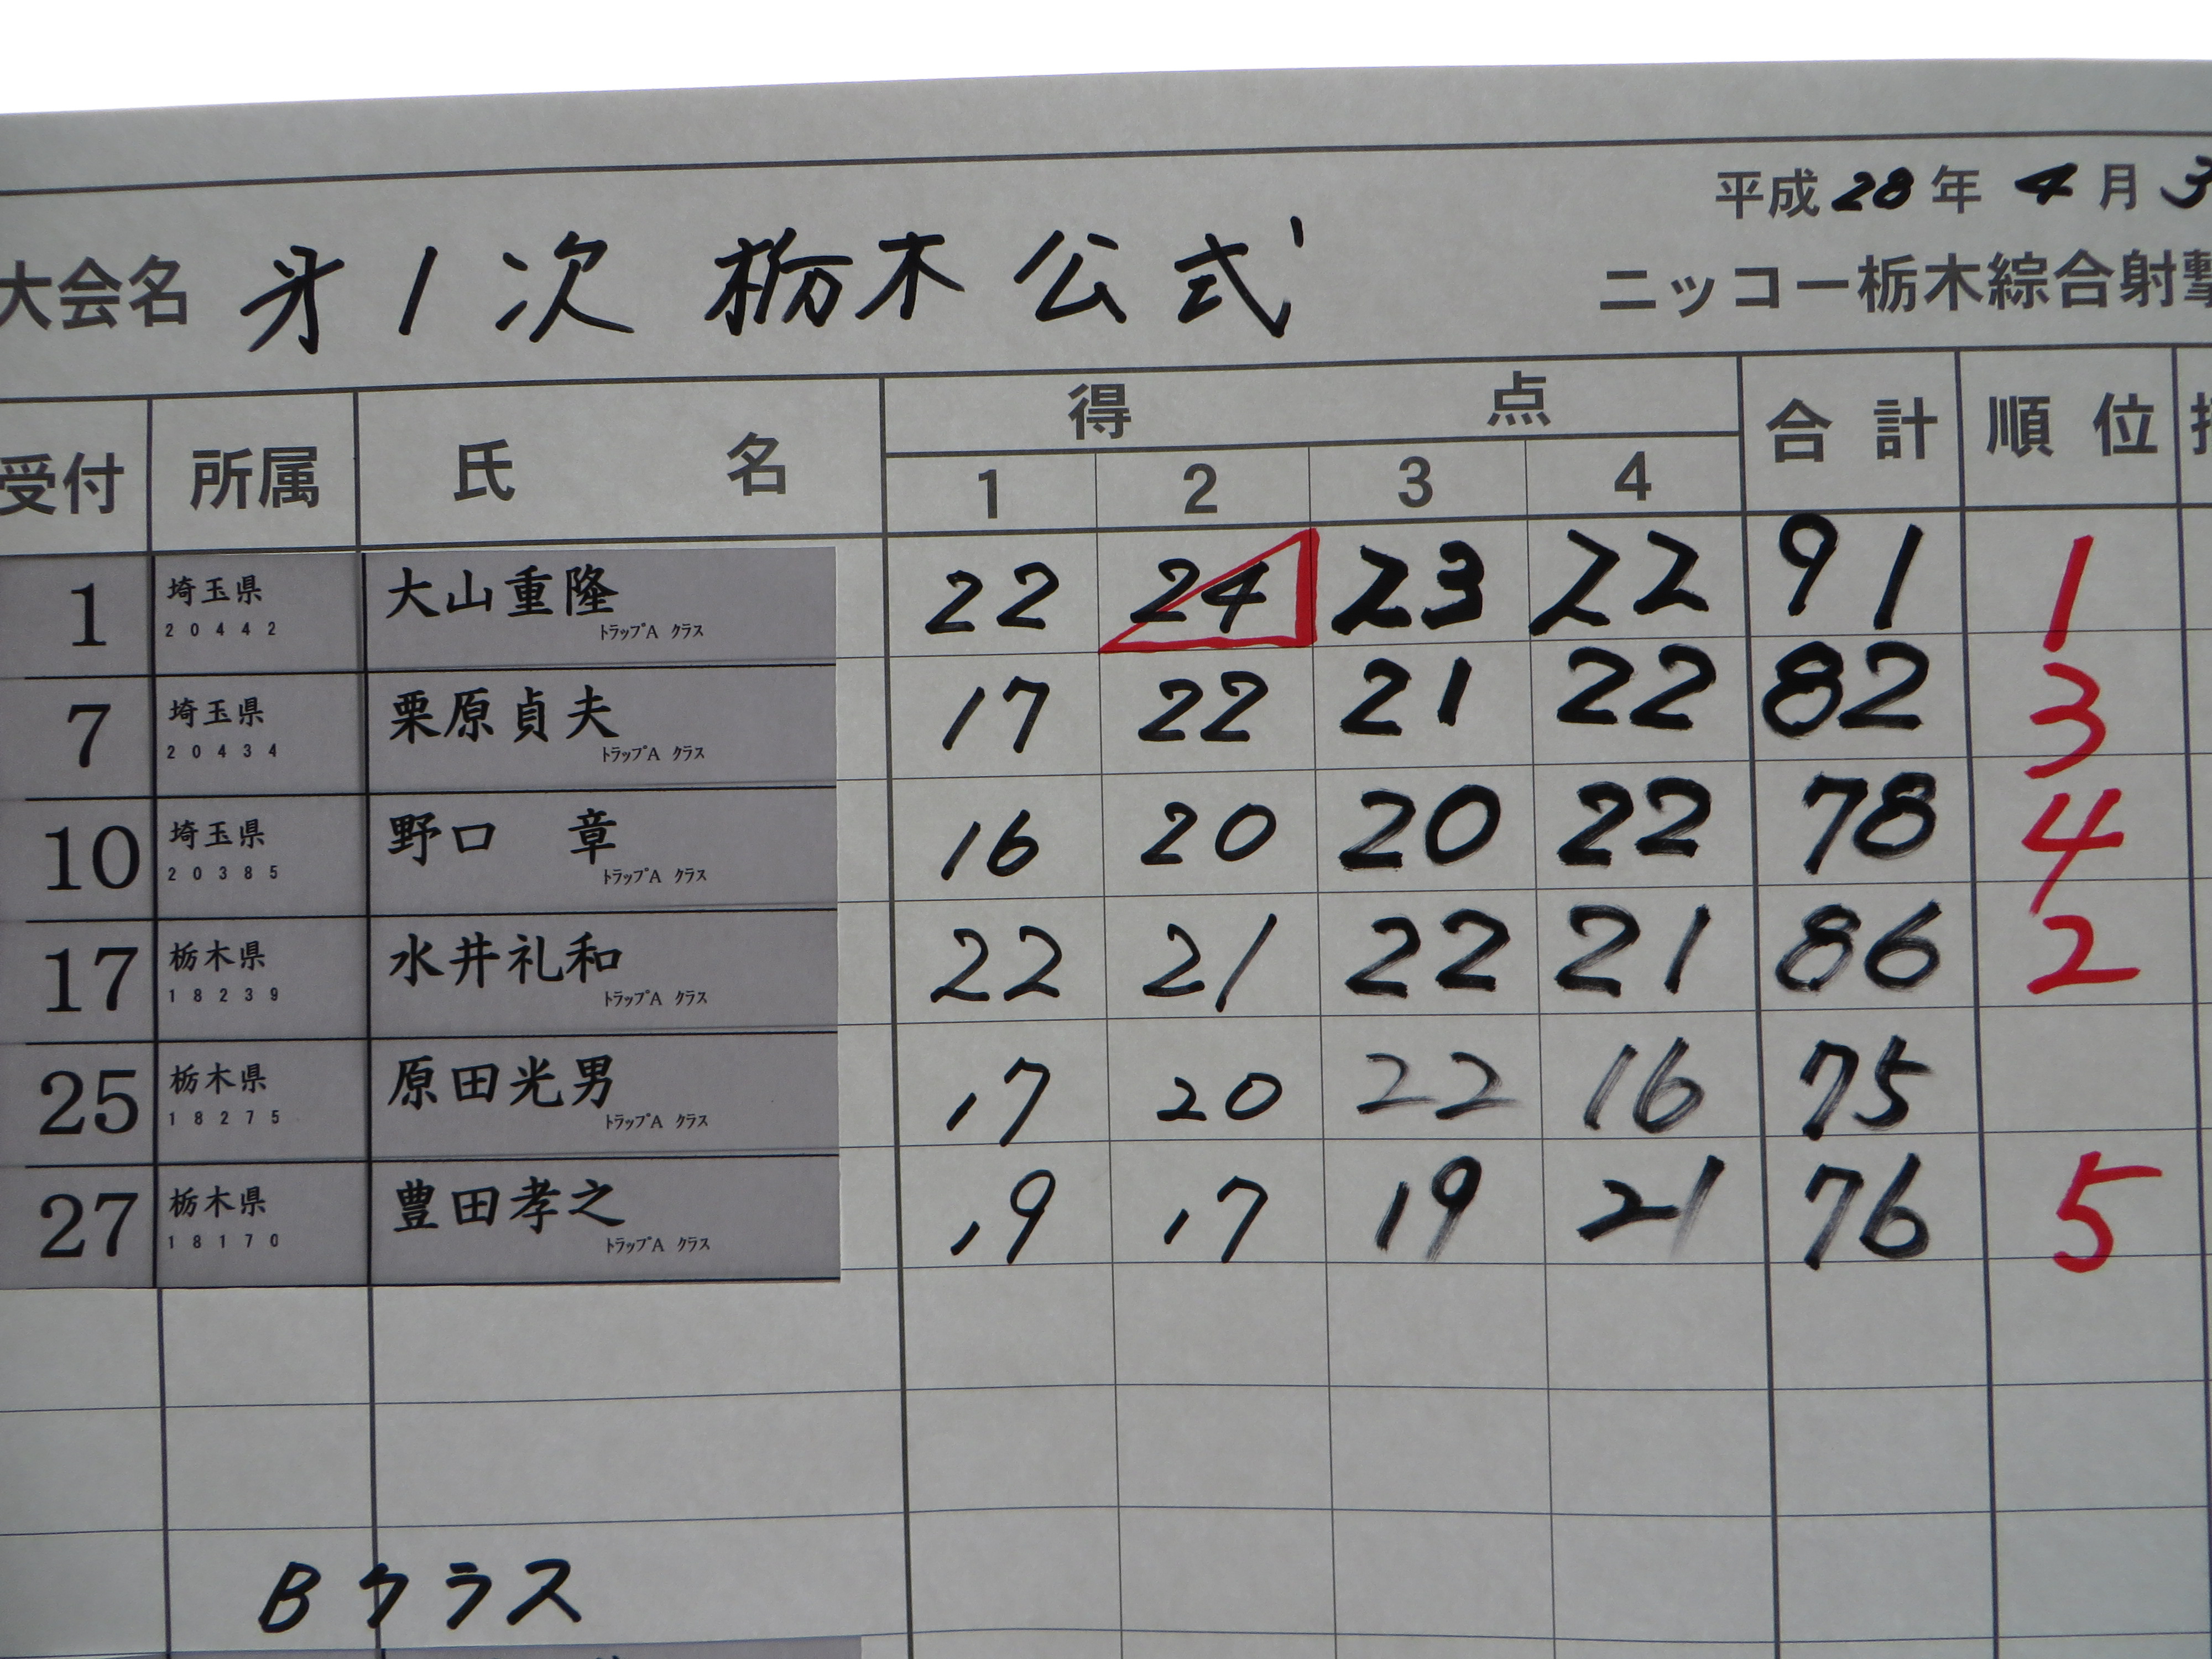 平成28年4月3
大会名 第1次 栃木公式
ニッコー栃木綜合射撃
受付 所属 氏名 得点 合計 順位
1 2 3 4
1 埼玉県 20442 大山重隆 トラップA クラス 22 24 23 22 91 1
7 埼玉県 20434 栗原貞夫 トラップA クラス 17 22 21 22 82 3
10 埼玉県 20385 野口 章 トラップA クラス 16 20 20 22 78 4
17 栃木県 18239 水井礼和 トラップA クラス 22 21 22 21 86 2
25 栃木県 18275 原田光男 トラップA クラス 17 20 22 16 75
27 栃木県 18170 豊田孝之 トラップA クラス 19 17 19 21 76 5
Bクラス